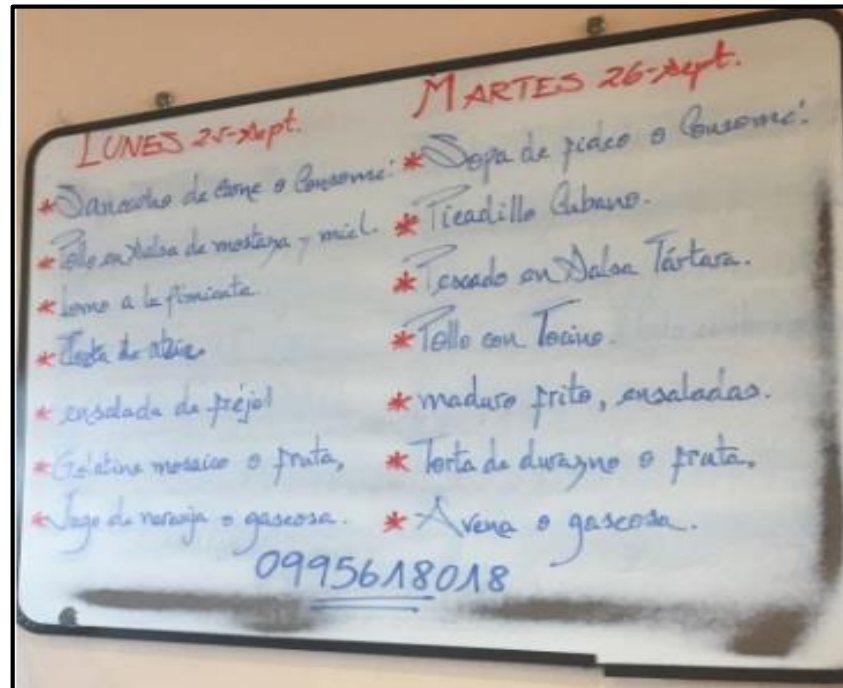 LUNES 25-sept.
* Sancocho de carne o Consomé.
* Pollo en salsa de mostaza y miel.
* Lomo a la pimienta
* Torta de
* ensalada de fréjol
* Gelatina mosaico o fruta,
* Jugo de naranja o gaseosa.
MARTES 26-sept.
* Sopa de fideo o Consomé.
* Picadillo Cubano.
* Pescado en Salsa Tártara.
* Pollo con Tocino.
* maduro frito, ensaladas.
* Torta de durazno o fruta,
* Avena o gaseosa.
0995618018